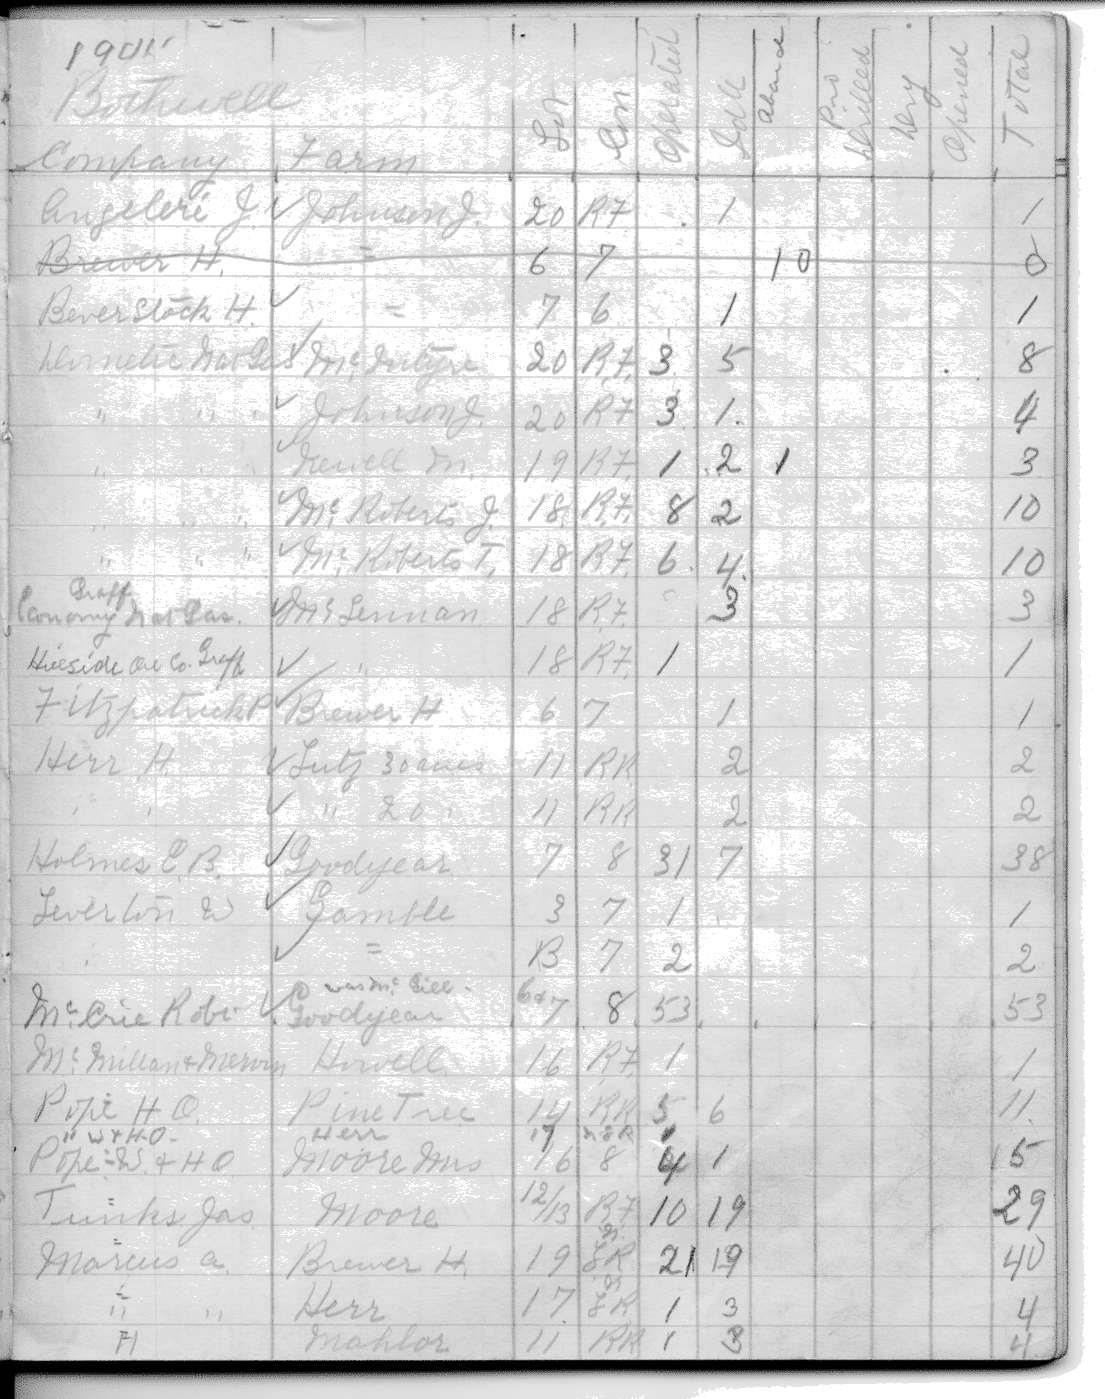 Bothwell
Company Farm Lot Con Operated Idle aband Pro Drilled Dry Opened Total
Angeleri J. ✓ Johnson J. 20 R7 1 1
Brewer H. = 6 7 10 0
Beverstock H. ✓ = 7 6 1 1
Nat Gas ✓ Mc Intyre 20 R.7. 3 5 8
" " " ✓ Johnson J. 20 R7 3 1 4
" " " ✓ Newell M. 19 R7 1 2 1 3
" " " ✓ Mc Roberts J. 18 R.7. 8 2 10
" " " ✓ Mc Roberts T. 18 R7. 6 4 10
Graff
Economy Nat Gas. ✓ Mc Lennan 18 R.7. 3 3
Hillside Oil Co. Graff ✓ " 18 R7. 1 1
Fitzpatrick P ✓ Brewer H 6 7 1 1
Herr H ✓ Lutz 30 acres 11 RR 2 2
" " ✓ " 20 " 11 RR 2 2
Holmes E.B. ✓ Goodyear 7 8 31 7 38
Leverton W ✓ Gamble 3 7 1 1
" ✓ = B 7 2 2
was Mc Gill
Mc Crie Robt ✓ Goodyear 6&7 8 53 53
Mc Millan & Howell 16 R.7. 1 1
Pope H O. Pine Tree 14 RR 5 6 11
" W & H.O. Herr 17
Pope W. & H O Moore Mrs 16 8 4 1 5
Tunks Jas. Moore 12/13 R7 10 19 29
Marcus A. Brewer H. 19 21 19 40
" " Herr 17 1 3 4
Mahlor 11 RR 1 3 4